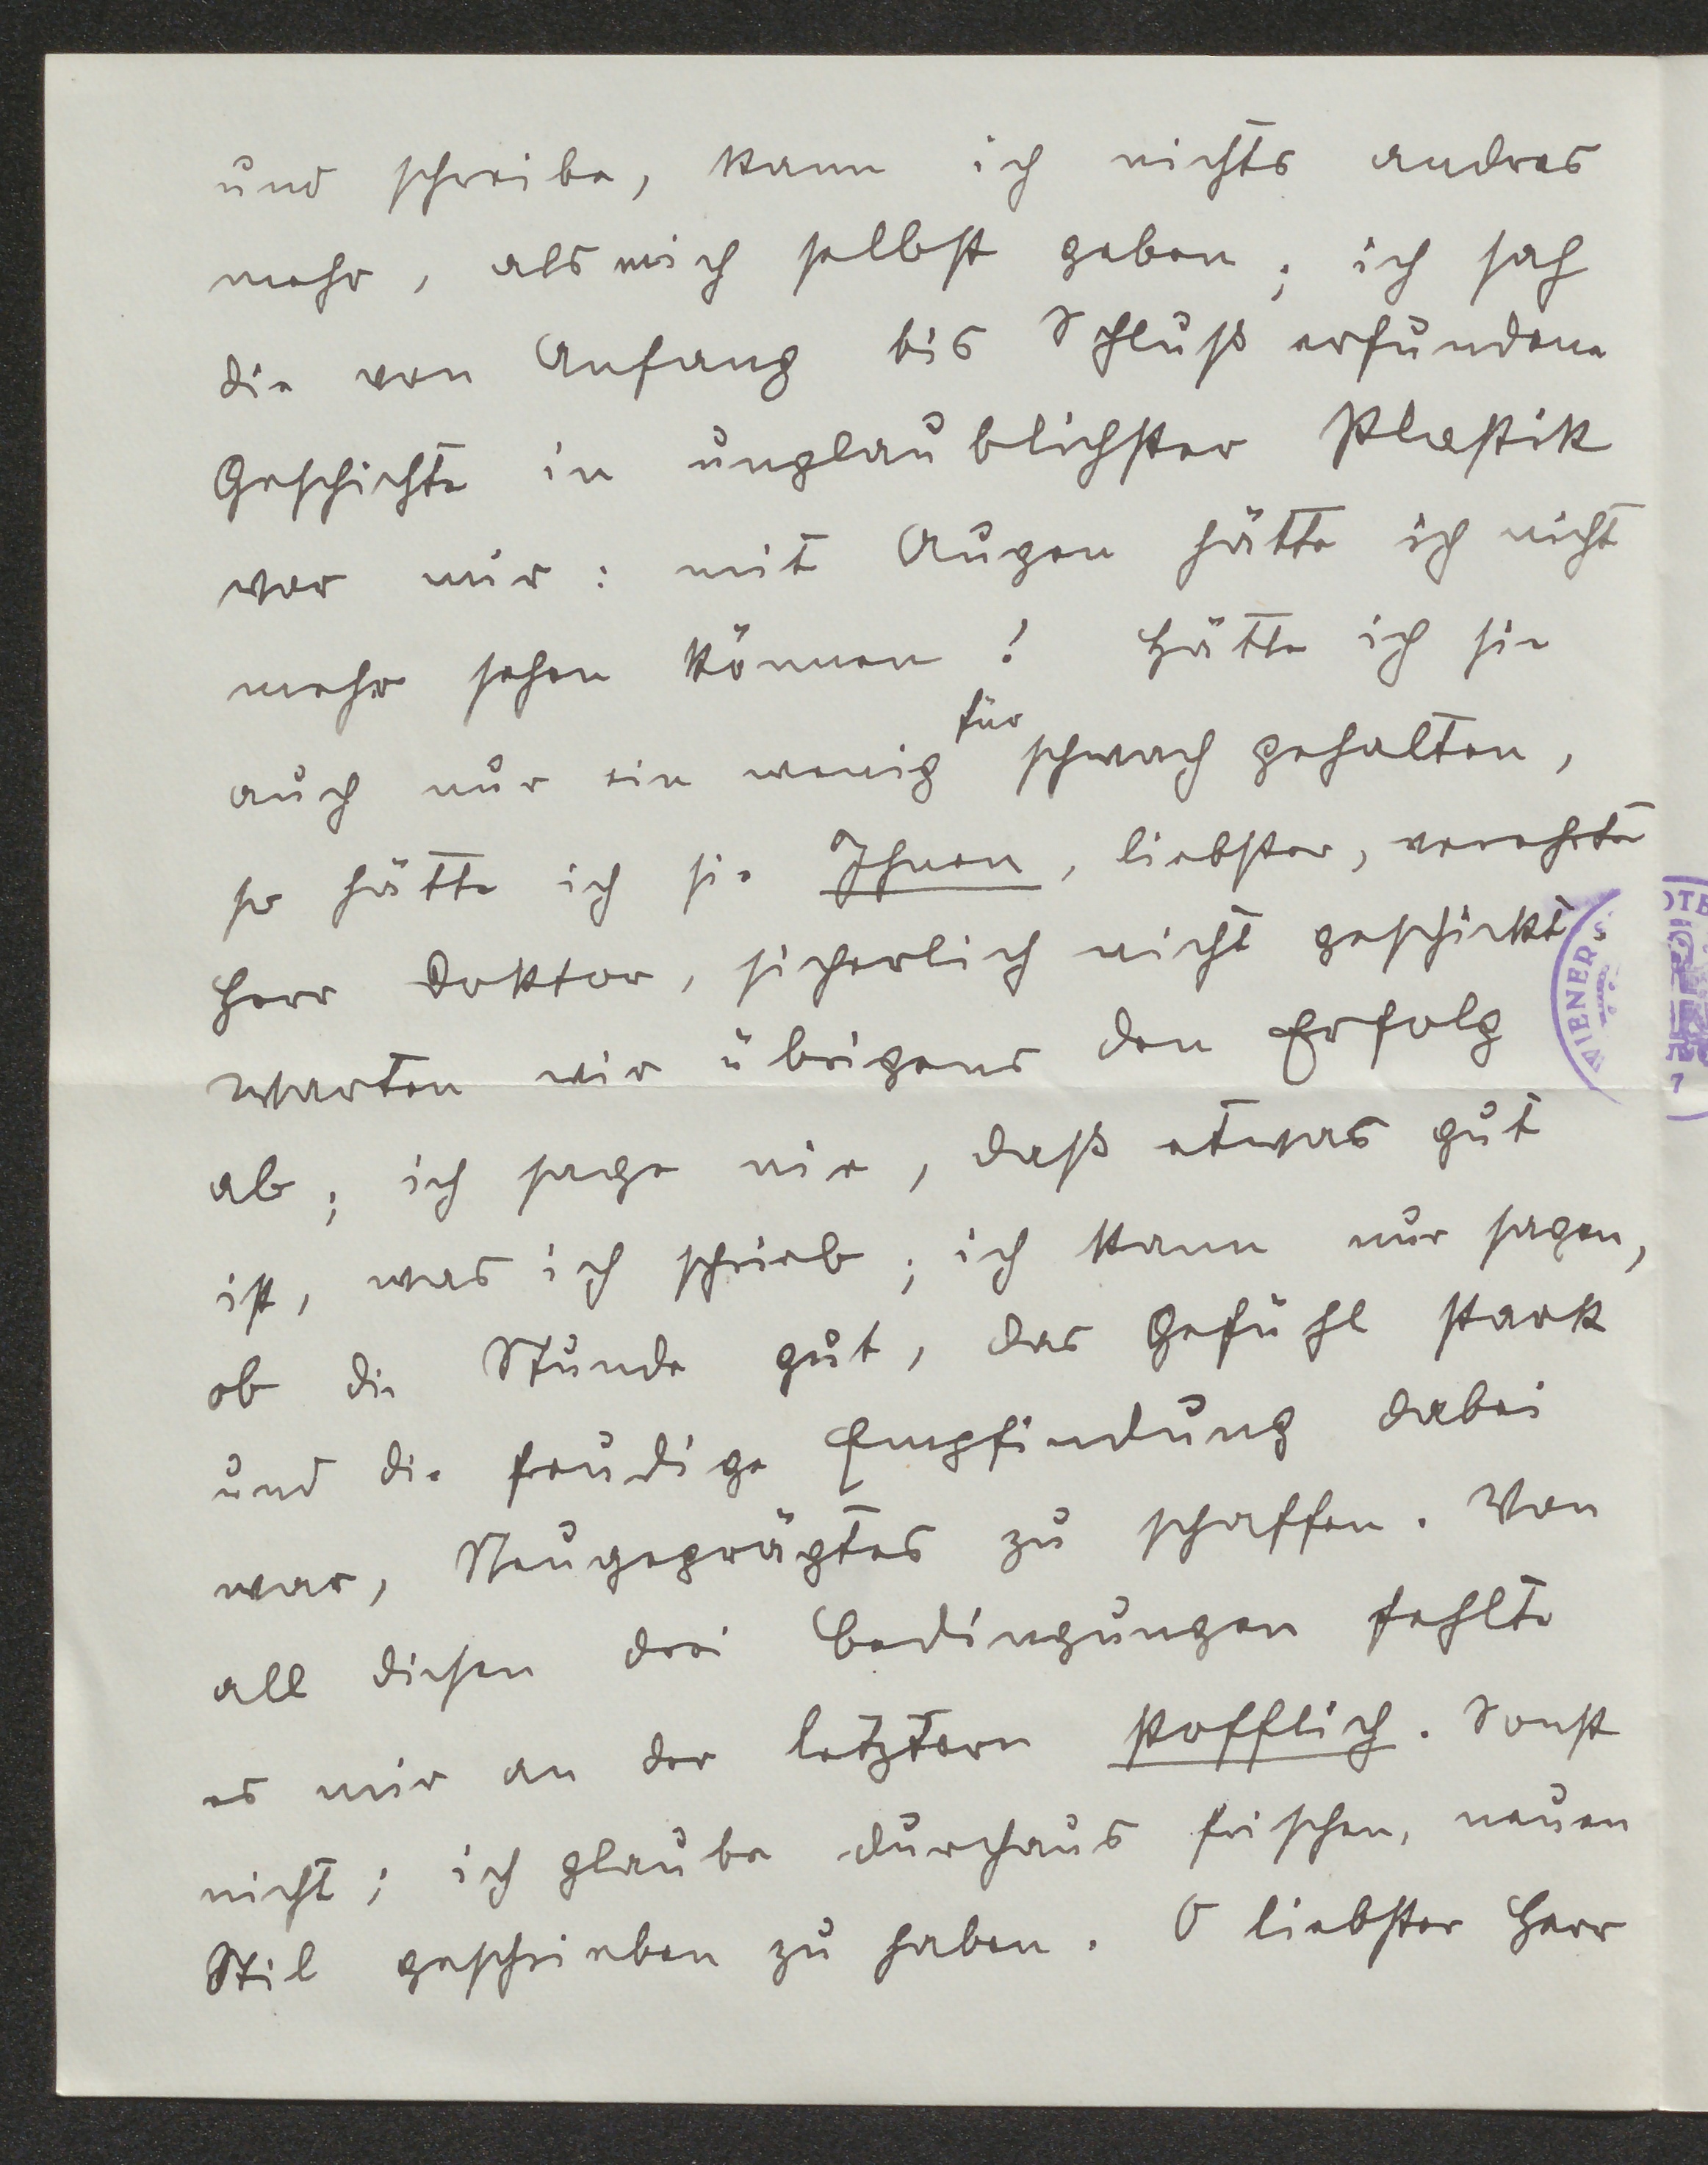 und schreibe, kann ich nichts andres
mehr, als mich selbst geben; ich sah
die von Anfang bis Schluß erfundene
Geschichte in unglaublichster Plastik
vor mir: mit Augen hätte ich nicht
mehr sehen können! Hätte ich sie
auch nur ein wenig für schwach gehalten,
so hätte ich sie Ihnen, liebster, verehrter
Herr Doktor, sicherlich nicht geschickt.
Warten wir übrigens den Erfolg
ab; ich sage nie, daß etwas gut
ist, was ich schrieb; ich kann nur sagen,
ob die Stunde gut, das Gefühl stark
und die freudige Empfindung dabei
war, Neugeprägtes zu schaffen. Von
all diesen drei Bedingungen fehlte
es mir an der letztern stofflich. Sonst
nicht; ich glaube durchaus frischen, neuen
Stil geschrieben zu haben. O liebster Herr
WIENER
7